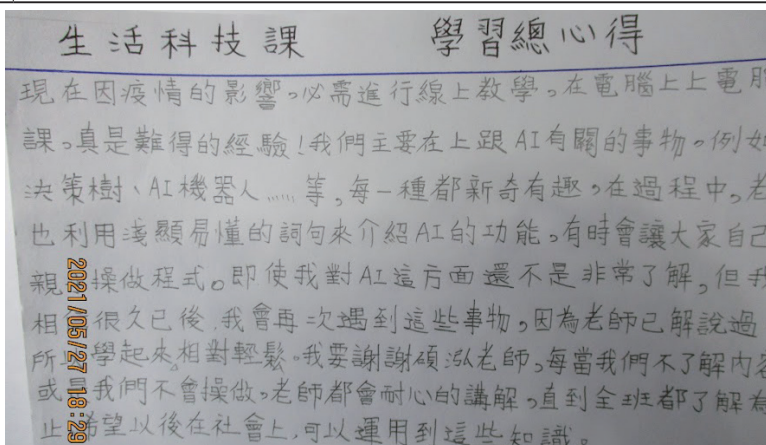 生活科技課 學習總心得
現在因疫情的影響。必需進行線上教學。在電腦上上電腦
課。真是難得的經驗！我們主要在上跟AI有關的事物。例如
決策樹、AI機器人……等,每一種都新奇有趣。在過程中,老
也利用淺顯易懂的詞句來介紹AI的功能。有時會讓大家自己
親 操做程式。即使我對AI這方面還不是非常了解,但我
相 很久已後,我會再次遇到這些事物,因為老師已解說過
所 學起來,相對輕鬆。我要謝謝碩泓老師,每當我們不了解內容
或是我們不會操做。老師都會耐心的講解。直到全班都了解為
止 希望以後在社會上,可以運用到這些知識。
2021/05/27 18:29